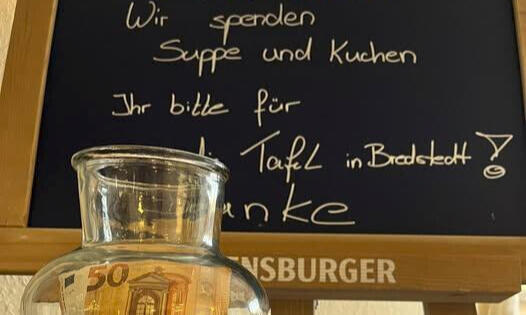 Wir spenden
Suppe und Kuchen
Ihr bitte für
die Tafel in Bredstedt!
anke
ENSBURGER
50